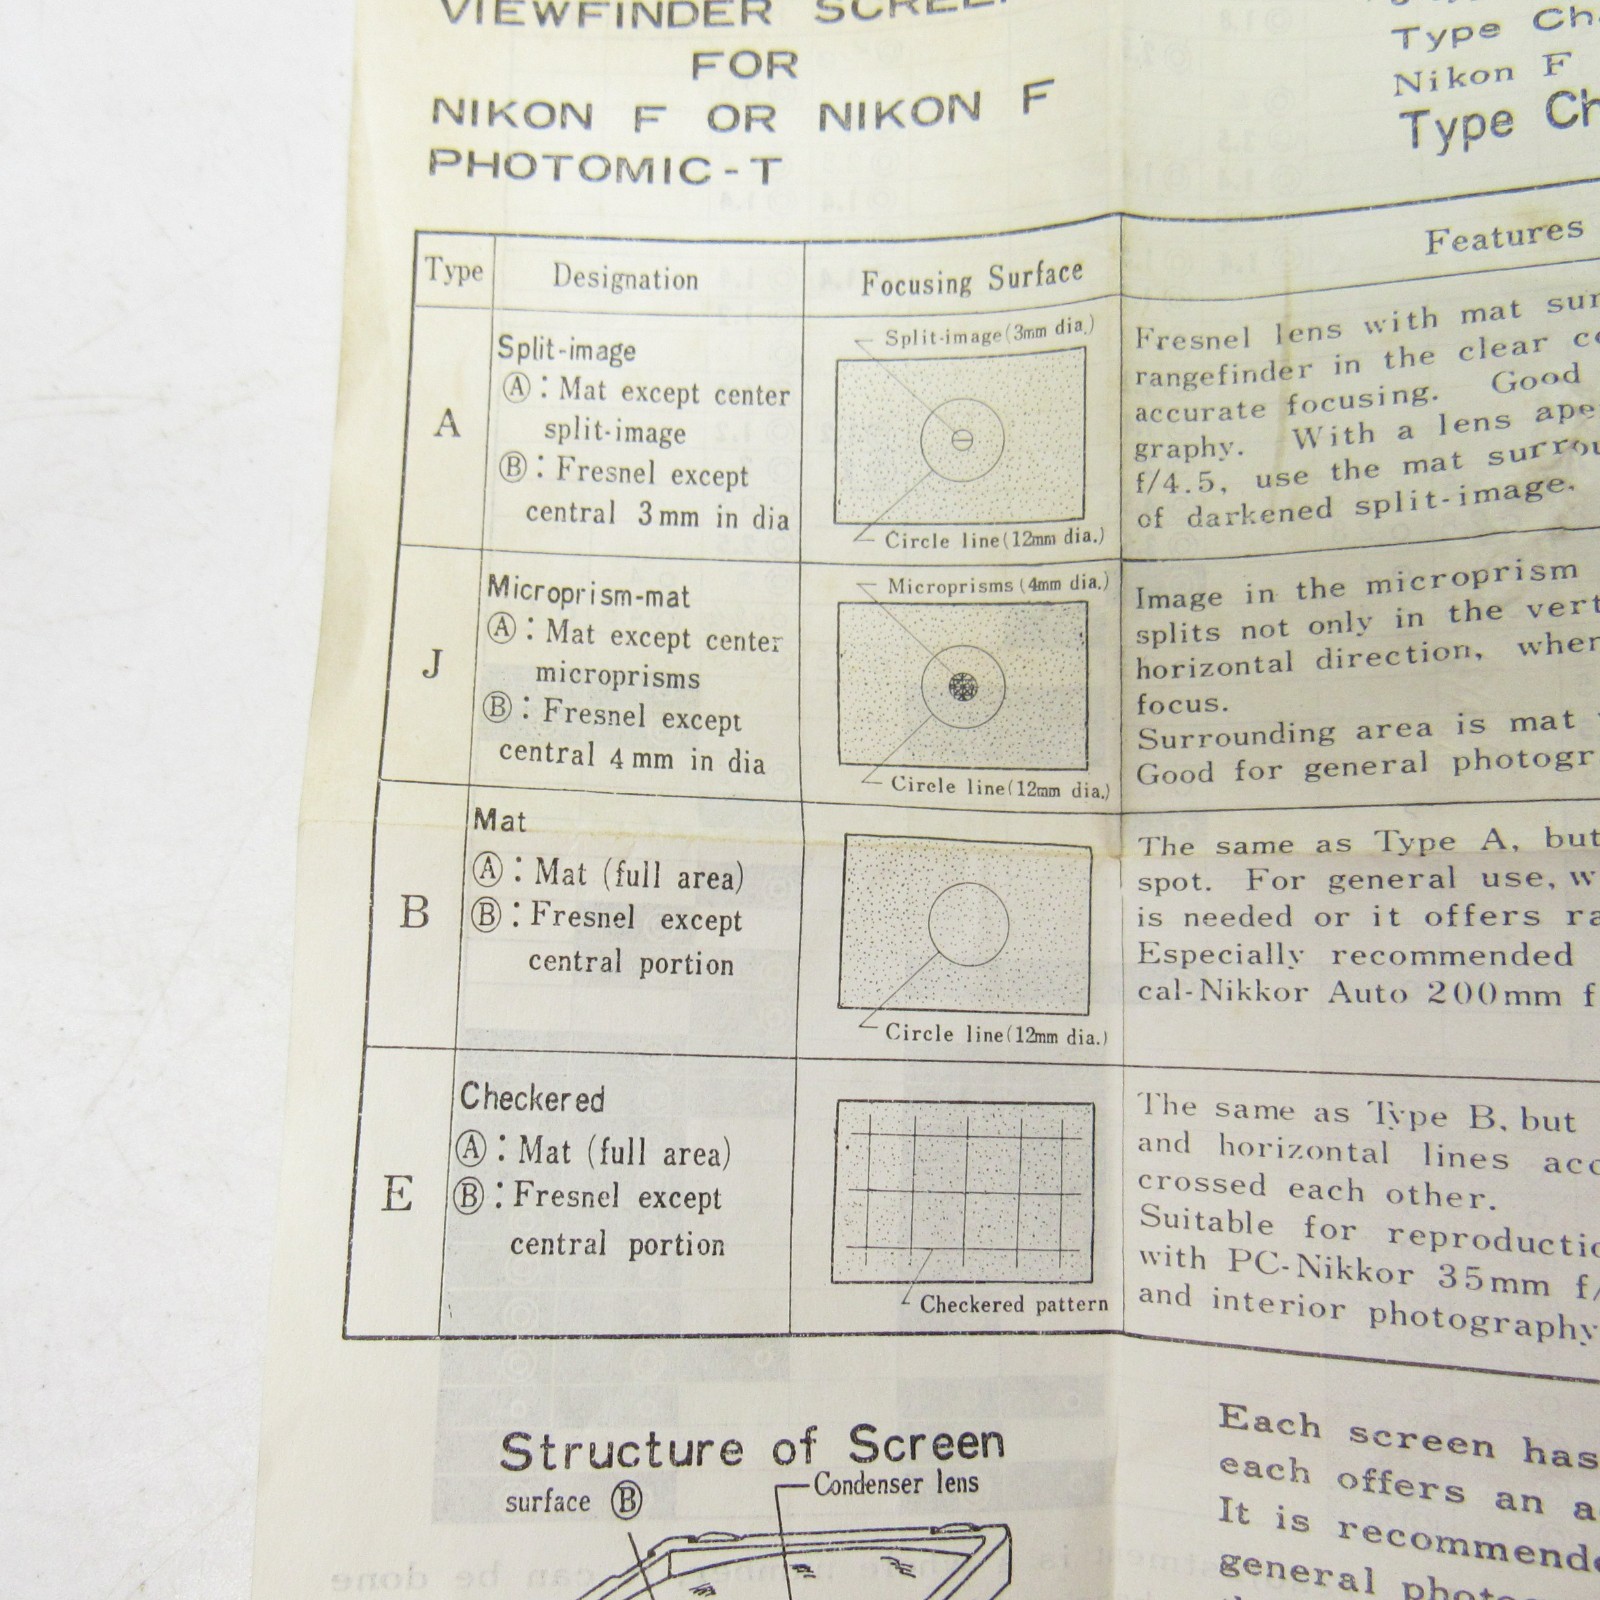 VIEWFINDER SCREEN
FOR
NIKON F OR NIKON F
PHOTOMIC-T
Type
Nikon F
Type
Type
Designation
Focusing Surface
Features
A
Split-image
Ⓐ: Mat except center
split-image
Ⓑ: Fresnel except
central 3mm in dia
Split-image(3mm dia.)
Circle line(12mm dia.)
Fresnel lens with mat
rangefinder in the clear
accurate focusing. Good
graphy. With a lens
f/4.5, use the mat
of darkened split-image.
J
Microprism-mat
Ⓐ: Mat except center
microprisms
Ⓑ: Fresnel except
central 4mm in dia
Microprisms(4mm dia.)
Circle line(12mm dia.)
Image in the microprism
splits not only in the
horizontal direction,
focus.
Surrounding area is mat
Good for general
B
Mat
Ⓐ: Mat (full area)
Ⓑ: Fresnel except
central portion
Circle line(12mm dia.)
The same as Type A, but
spot. For general use,
is needed or it offers
Especially recommended
cal-Nikkor Auto 200mm
E
Checkered
Ⓐ: Mat (full area)
Ⓑ: Fresnel except
central portion
Checkered pattern
The same as Type B, but
and horizontal lines
crossed each other.
Suitable for
with PC-Nikkor 35mm
and interior photography
Structure of Screen
surface Ⓑ
Condenser lens
Each screen has
each offers an
It is
general